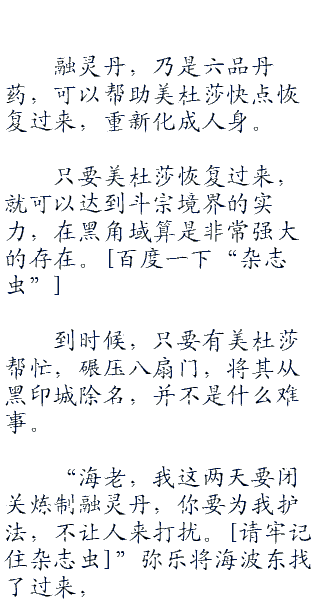 融灵丹，乃是六品丹
药，可以帮助美杜莎快点恢
复过来，重新化成人身。
只要美杜莎恢复过来，
就可以达到斗宗境界的实
力，在黑角域算是非常强大
的存在。[百度一下“杂志
虫”]
到时候，只要有美杜莎
帮忙，碾压八扇门，将其从
黑印城除名，并不是什么难
事。
“海老，我这两天要闭
关炼制融灵丹，你要为我护
法，不让人来打扰。[请牢记
住杂志虫]”弥乐将海波东找
了过来，